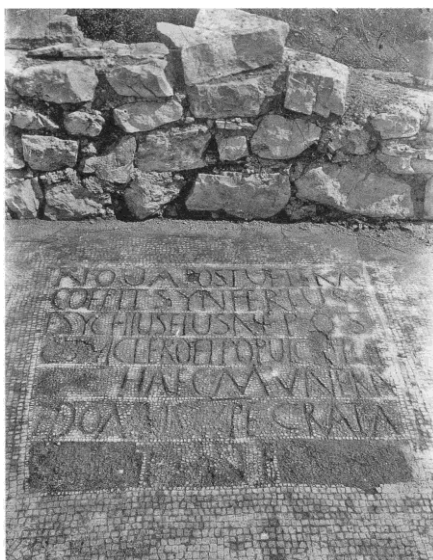 NOVA POST VETERA
COEPIT SYNFERIUS
ESYCHIUS EIUS NEPOS
CLERO ET POPULO
HAEC MUNERA
DOMUS XPE GRATA
TENE